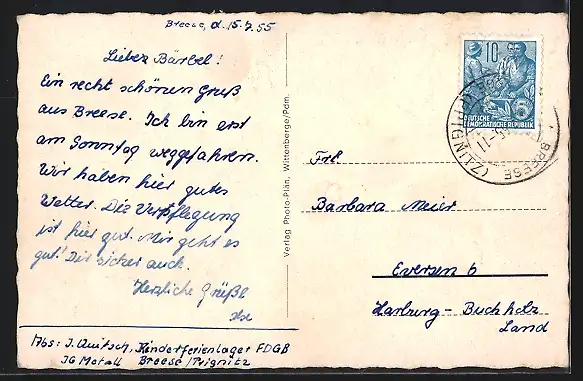 Breese, d. 15.7.55
Lieber Bärbel!
Ein recht schönen Gruß
aus Breese. Ich bin erst
am Sonntag weggefahren.
Wir haben hier gutes
Wetter. Die Verpflegung
ist hier gut. Mir geht es
gut! Dir sicher auch.
Herzliche Grüße
Abs: I. Quitsch, Kinderferienlager FDGB
IG Metall Breese/Prignitz
Verlag Photo-Plän, Wittenberge/Pdm.
10
DEUTSCHE
DEMOKRATISCHE REPUBLIK
5
BREESE
(PRIGNITZ)
Frl.
Barbara Meier
Eversen 6
Harburg - Buchholz
Land